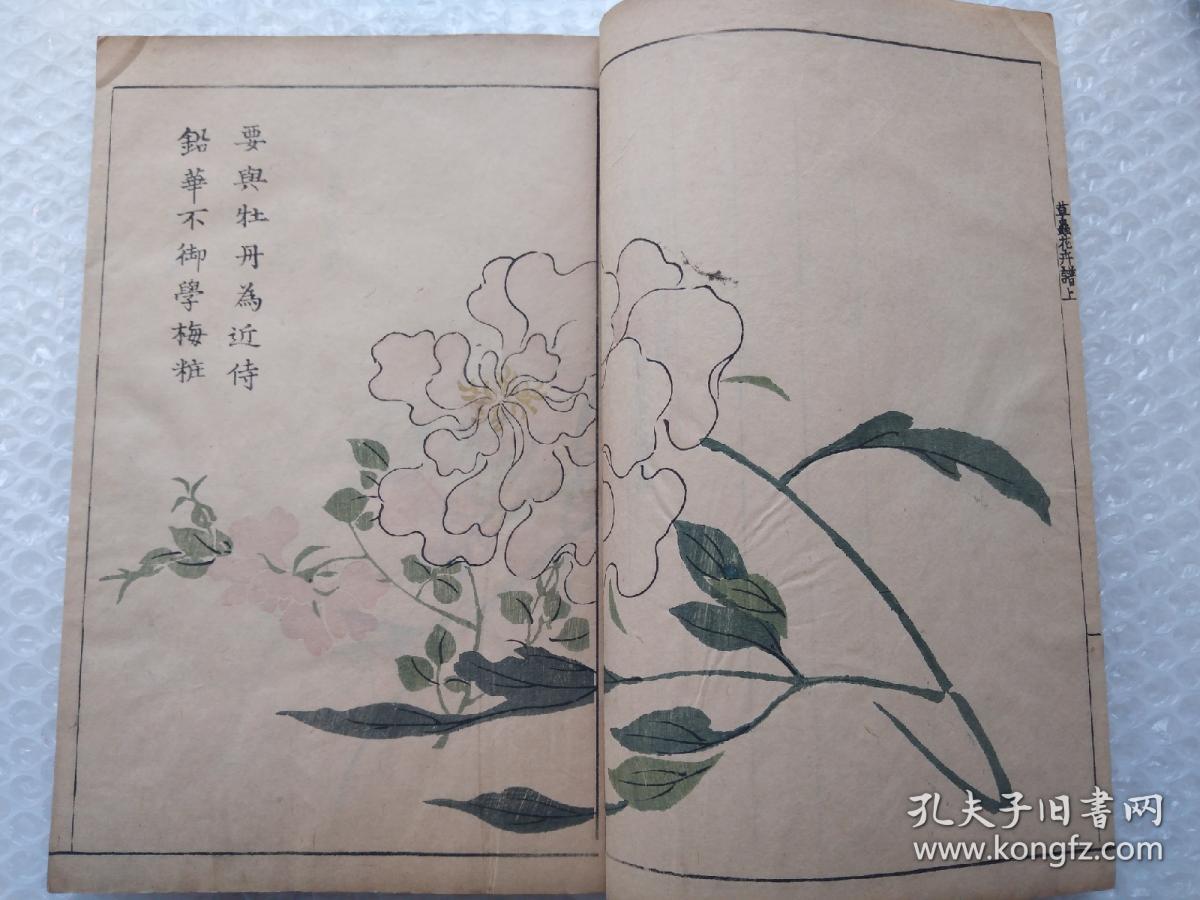 要與牡丹為近侍
鉛華不御學梅粧
草蟲花卉譜上
一
孔夫子旧书网
www.kongfz.com